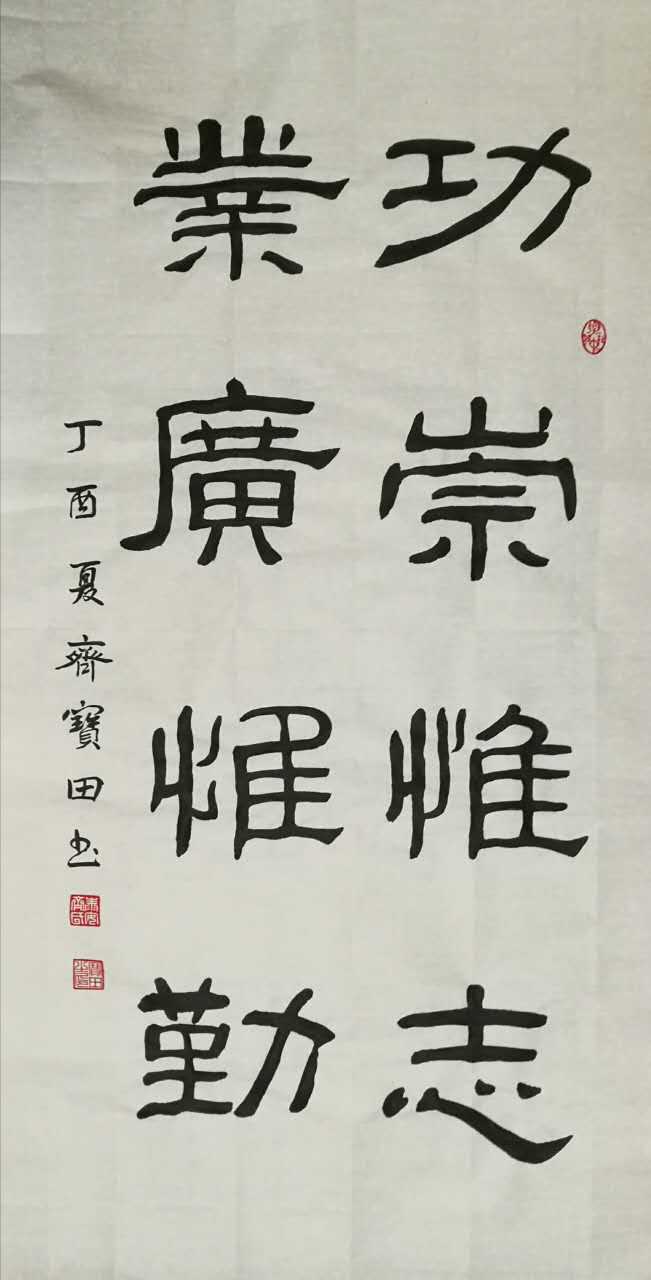 功崇惟志
業廣惟勤
丁酉夏齊寶田书